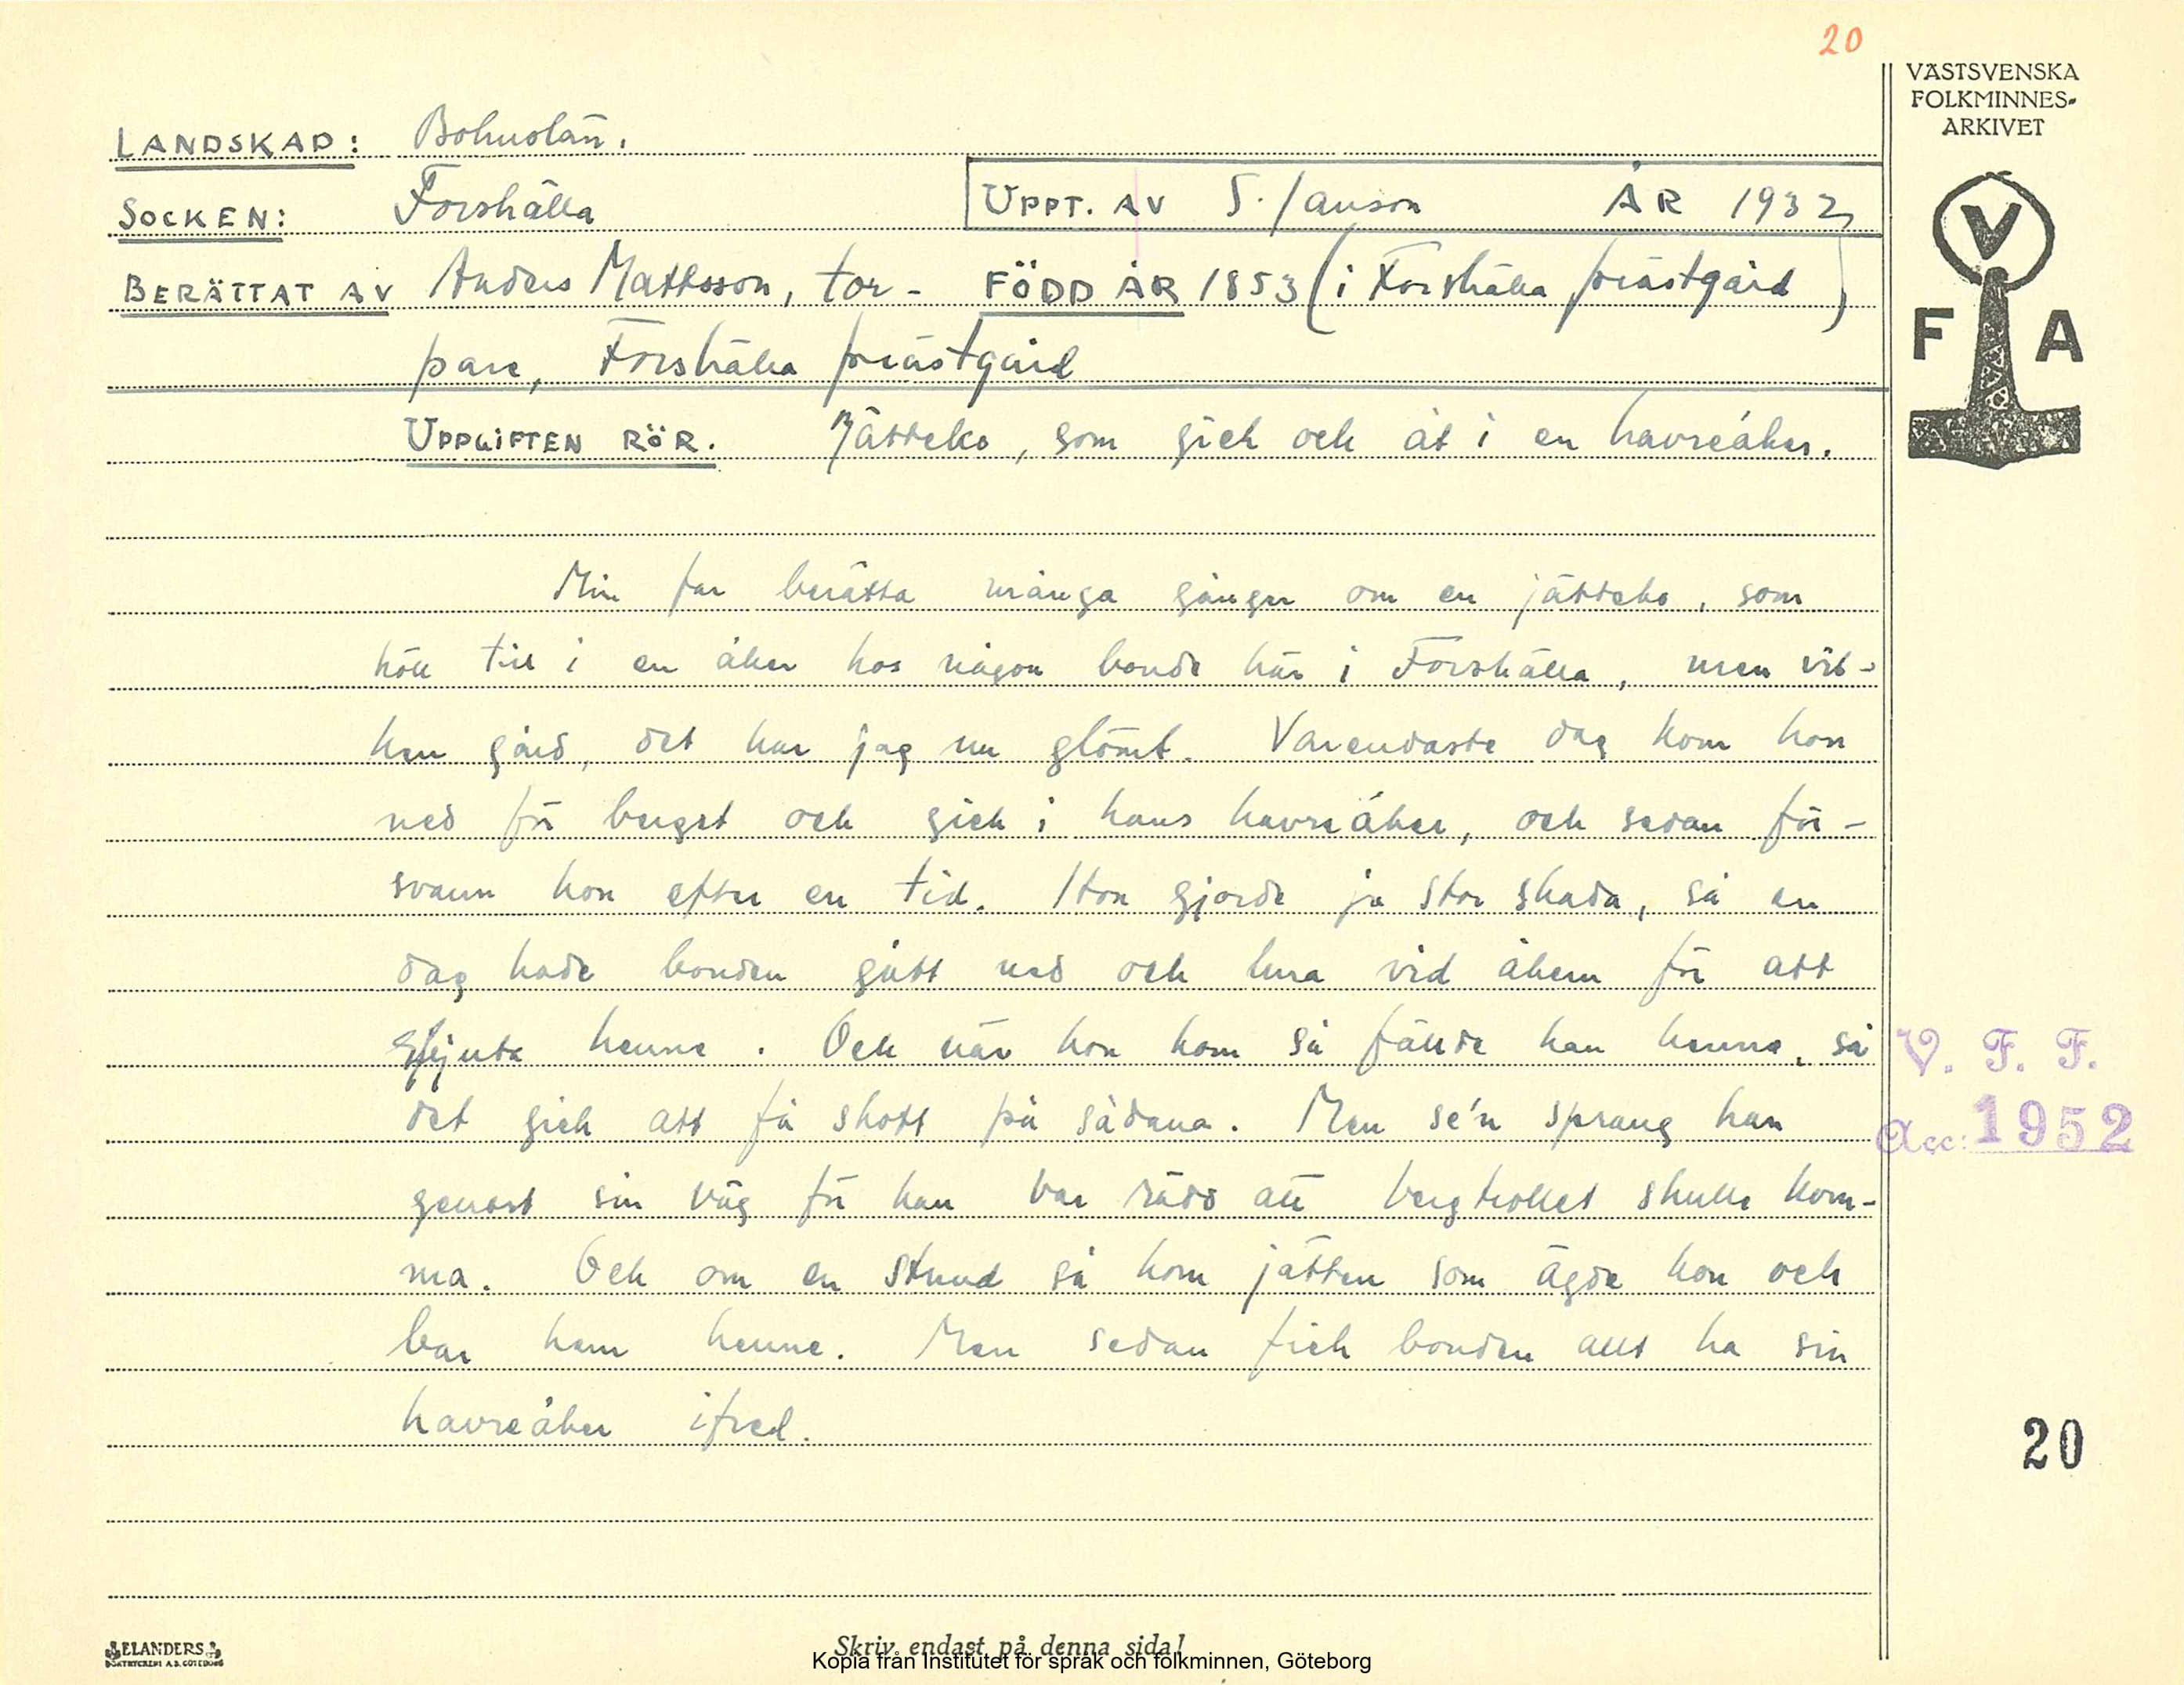 20
VÄSTSVENSKA
FOLKMINNES-
ARKIVET
LANDSKAP: Bohuslän.
SOCKEN: Forshälla
UPPT. AV S. Janson ÅR 1932
BERÄTTAT AV Anders Mattsson, tor-
FÖDD ÅR 1853 (i Forshälla prästgård)
pare, Forshälla prästgård
UPPGIFTEN RÖR. Jätteko, som gick och åt i en havreåker.
V
F A
Min far berätta många gånger om en jätteko, som
höll till i en åker hos någon bonde här i Forshälla, men vil-
ken gård, det har jag nu glömt. Varendaste dag kom hon
ned för berget och gick i hans havreåker, och sedan för-
svann hon efter en tid. Hon gjorde ju stor skada, så en
dag hade bonden gått ned och lura vid åkern för att
skjuta henne. Och när hon kom så fällde han henne, så
det gick att få skott på sådana. Men se'n sprang han
genast sin väg för han var rädd att bergtrollet skulle kom-
ma. Och om en stund så kom jätten som ägde kon och
bar hem henne. Men sedan fick bonden allt ha sin
havreåker ifred.
V. F. F.
Acc: 1952
20
ELANDERS
BOKTRYCKERI A.B. GÖTEBORG
Skriv endast på denna sida!
Kopia från Institutet för språk och folkminnen, Göteborg